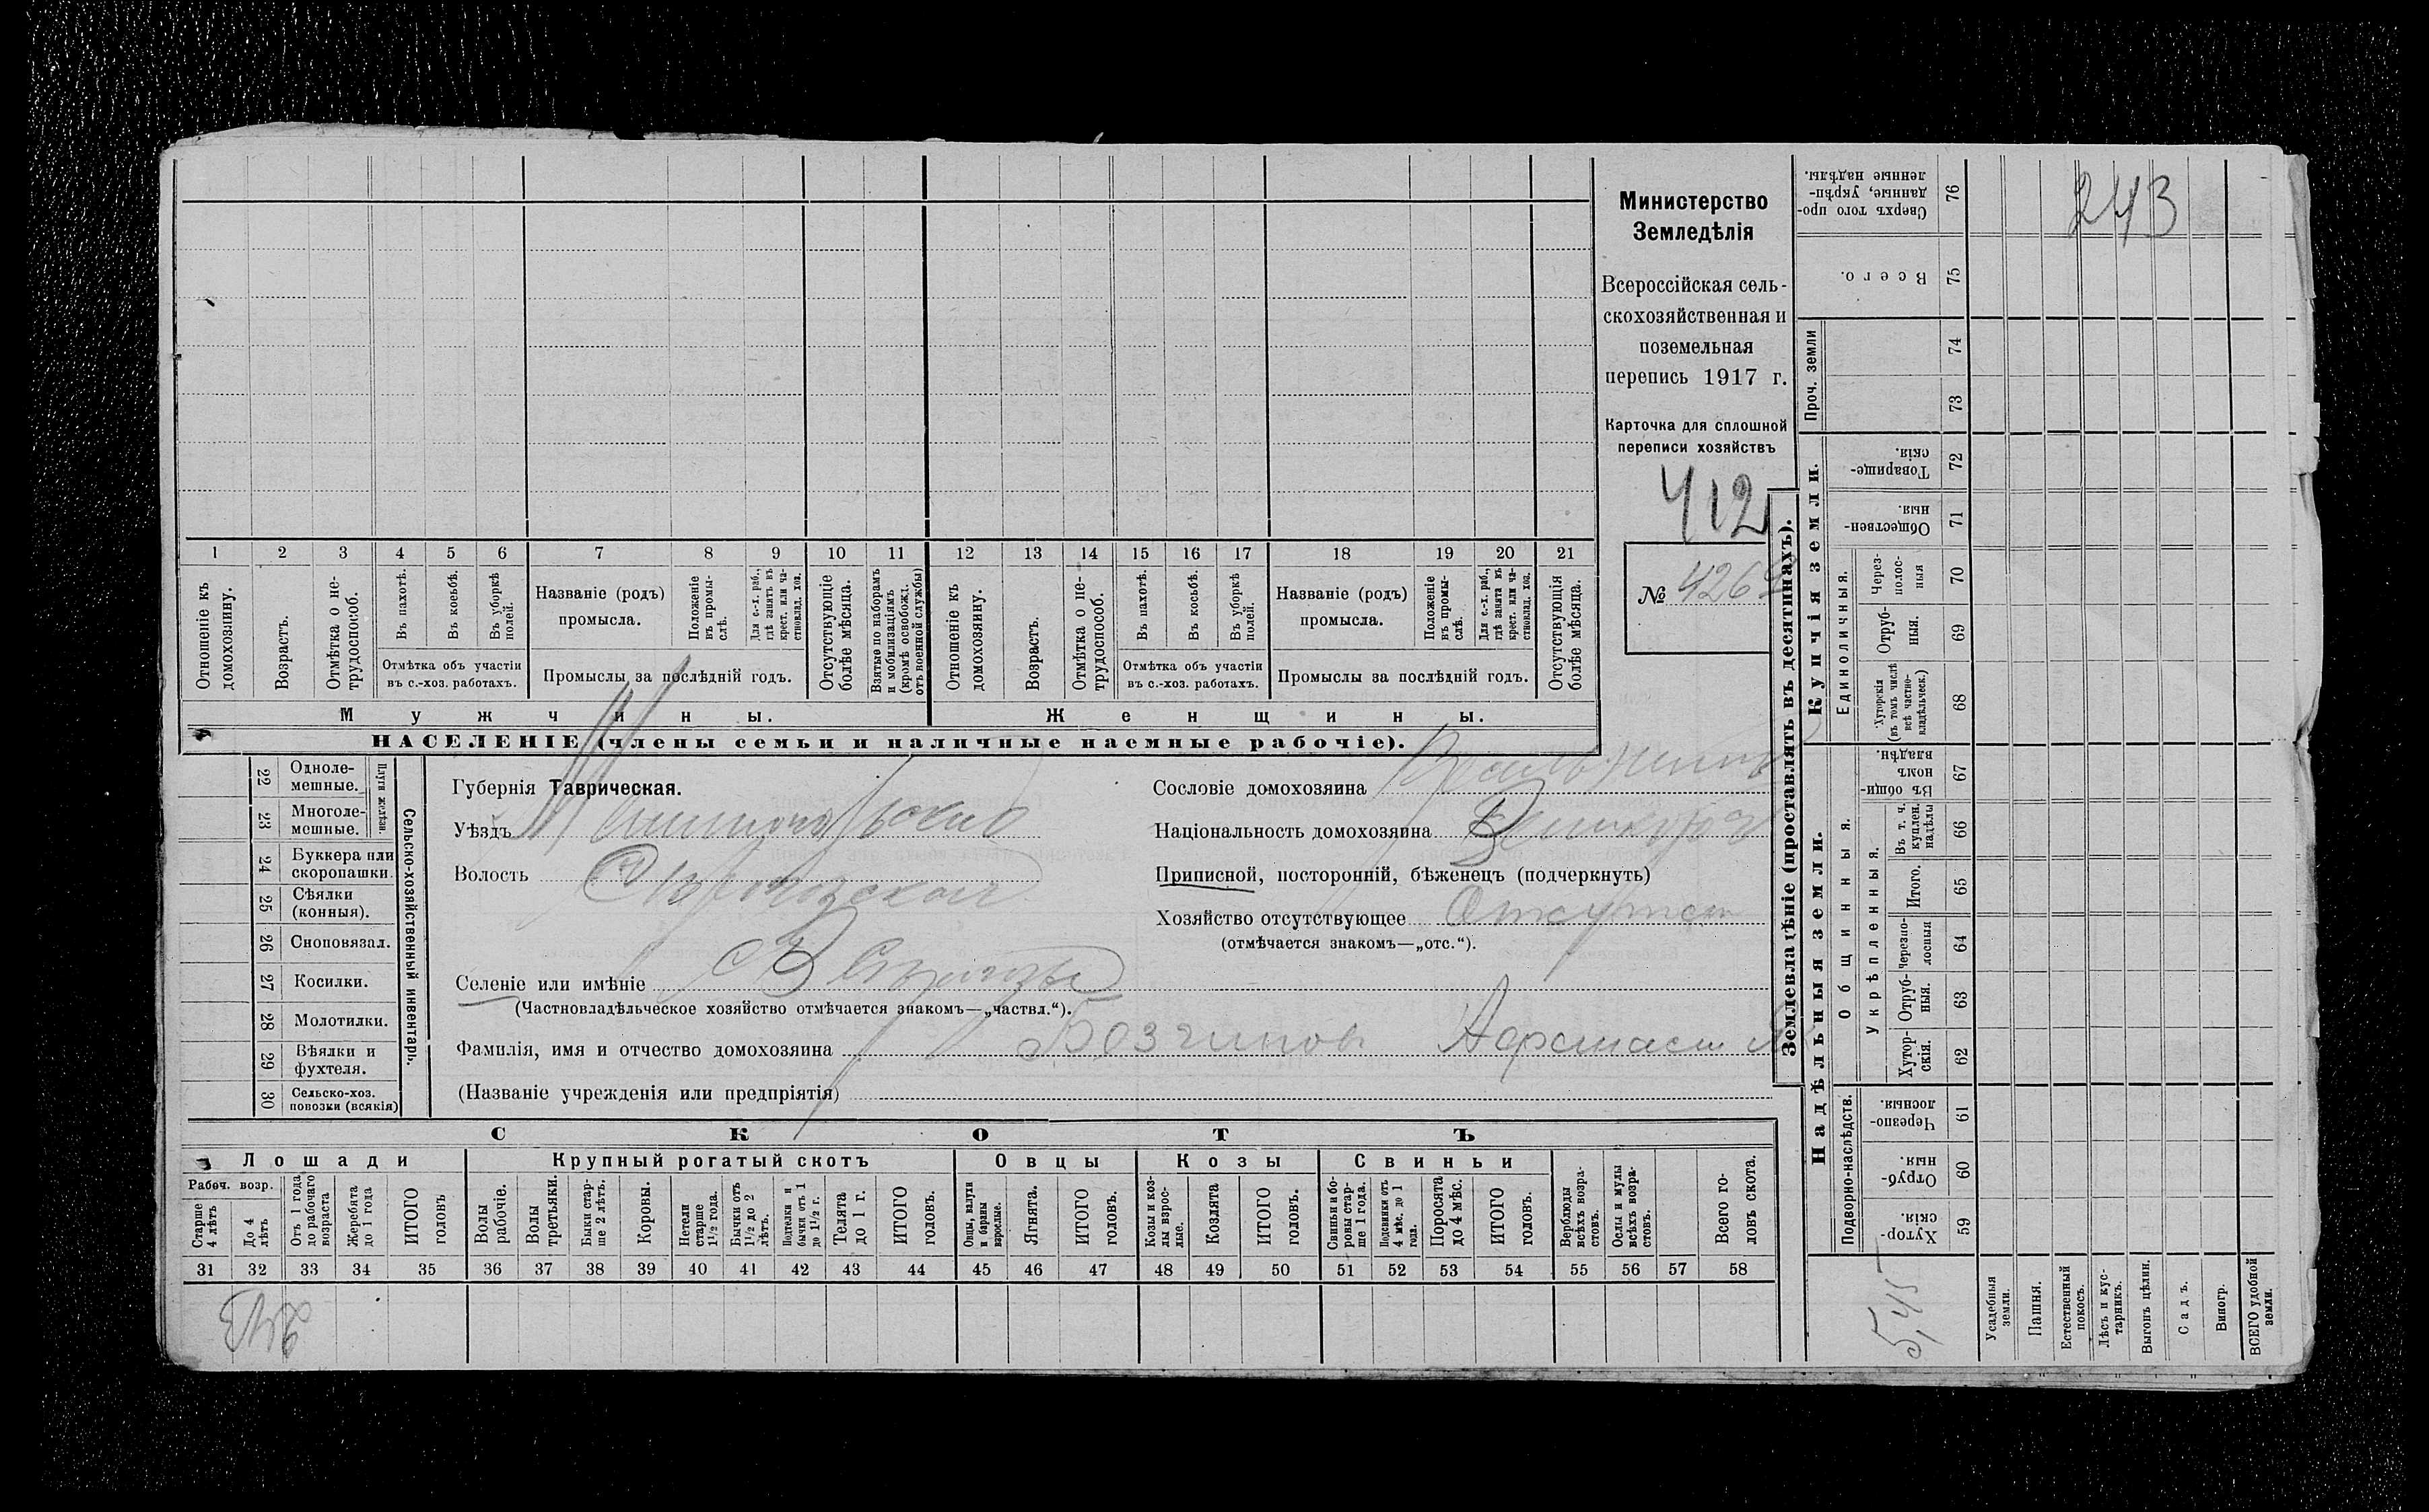 Министерство
Земледѣлія
Всероссійская сель-
скохозяйственная и
поземельная
перепись 1917 г.
Карточка для сплошной
переписи хозяйствъ
412
№ 426
243
1 2 3 4 5 6 7 8 9 10 11 12 13 14 15 16 17 18 19 20 21
Отношеніе къ домохозяину.
Возрастъ.
Отмѣтка о не-трудоспособ.
Въ пахотѣ.
Въ косьбѣ.
Въ уборкѣ полей.
Отмѣтка объ участіи
въ с.-хоз. работахъ.
Названіе (родъ)
промысла.
Положеніе въ промы-слѣ.
Для с.-х. раб., гдѣ занятъ въ крест. или ча-стновлад. хоз.
Промыслы за послѣдній годъ.
Отсутствующіе болѣе мѣсяца.
Взятые по наборамъ и мобилизаціямъ (кромѣ освобожд. отъ военной службы)
Отношеніе къ домохозяину.
Возрастъ.
Отмѣтка о не-трудоспособ.
Въ пахотѣ.
Въ косьбѣ.
Въ уборкѣ полей.
Отмѣтка объ участіи
въ с.-хоз. работахъ.
Названіе (родъ)
промысла.
Положеніе въ промы-слѣ.
Для с.-х. раб., гдѣ занята въ крест. или ча-стновлад. хоз.
Промыслы за послѣдній годъ.
Отсутствующія болѣе мѣсяца.
Мужчины.
Женщины.
НАСЕЛЕНІЕ (члены семьи и наличные наемные рабочіе).
22 Одноле-мешные.
23 Многоле-мешные.
Плуги желѣзн.
24 Буккера или скоропашки.
25 Сѣялки (конныя).
26 Сноповязал.
27 Косилки.
28 Молотилки.
29 Вѣялки и фухтеля.
30 Сельско-хоз. повозки (всякія)
Сельско-хозяйственный инвентарь.
Губернія Таврическая.
Уѣздъ
Волость
Селеніе или имѣніе
(Частновладѣльческое хозяйство отмѣчается знакомъ—„частвл.“).
Фамилія, имя и отчество домохозяина
(Названіе учрежденія или предпріятія)
Сословіе домохозяина
Національность домохозяина
Приписной, посторонній, бѣженецъ (подчеркнуть)
Хозяйство отсутствующее
(отмѣчается знакомъ—„отс.“).
СКОТЪ
Лошади
Рабоч. возр.
Старше 4 лѣтъ
До 4 лѣтъ
Отъ 1 года до рабочаго возраста
Жеребята до 1 года
ИТОГО головъ
Крупный рогатый скотъ
Волы рабочіе.
Волы третьяки.
Быки стар-ше 2 лѣтъ.
Коровы.
Нетели старше 1½ года.
Бычки отъ 1½ до 2 лѣтъ.
Подтелки и бычки отъ 1 до 1½ г.
Телята до 1 г.
ИТОГО головъ.
Овцы
Овцы, валухи и бараны взрослые.
Ягнята.
ИТОГО головъ.
Козы
Козы и коз-лы взрос-лые.
Козлята
ИТОГО головъ.
Свиньи
Свиньи и бо-ровы стар-ше 1 года.
Подсвинки отъ 4 мѣс. до 1 года.
Поросята до 4 мѣс.
ИТОГО головъ.
Верблюды всѣхъ возра-стовъ.
Ослы и мулы всѣхъ возра-стовъ.
Всего го-ловъ скота.
31 32 33 34 35 36 37 38 39 40 41 42 43 44 45 46 47 48 49 50 51 52 53 54 55 56 57 58
Землевладѣніе (проставлять въ десятинахъ).
Купчія земли.
Надѣльныя земли.
76 Сверхъ того про-данные, укрѣп-ленные надѣлы.
75 Всего.
Проч. земли
74
73
72 Товарище-скія.
71 Обществен-ныя.
Единоличныя.
70 Через-полос-ныя
69 Отруб-ныя.
68 Хуторскія (въ томъ числѣ всѣ частно-владѣльческ.)
Общинныя.
67 Въ общи-номъ владѣн.
Укрѣпленныя.
66 Въ т. ч. куплен. надѣлы
65 Итого.
64 Черезпо-лосныя
63 Отруб-ныя.
62 Хутор-скія.
Подворно-наслѣдств.
61 Черезпо-лосныя.
60 Отруб-ныя.
59 Хутор-скія.
5,45
Усадебныя земли.
Пашня.
Естественный покосъ.
Лѣсъ и кус-тарникъ.
Выгонъ цѣлин.
Садъ.
Виногр.
ВСЕГО удобной земли.